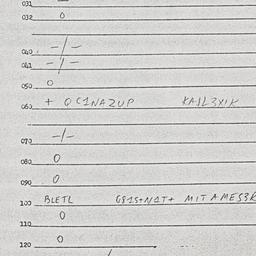 031
032 0
040 -/-
041 -/-
050 0
060 + QC1NAZUP KA1L3X1K
070 -/-
080 0
090 0
100 BLETL G81S+N1T+ MITAMES3K
110 0
120 0